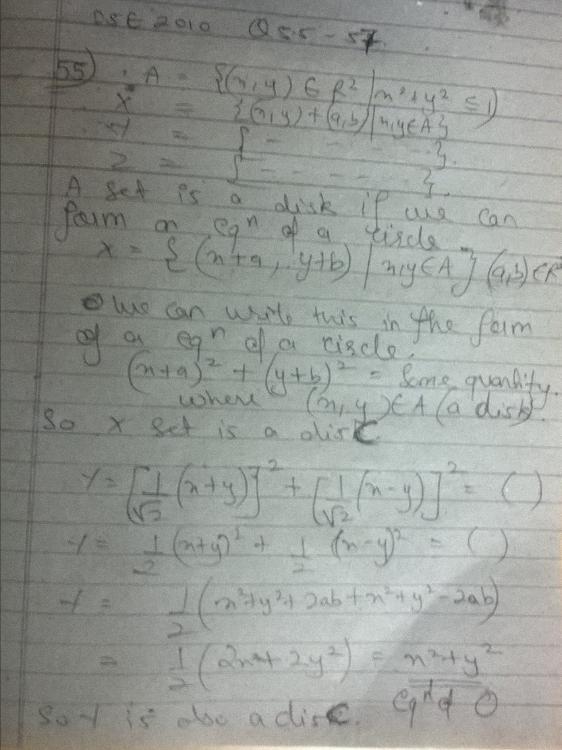 DSE 2010 Q 55 - 57
55) A = {(x, y) ∈ R² | x² + y² ≤ 1}
X = {(x, y) + (a, b) | x, y ∈ A}
Y = { - - - - - }.
Z = { - - - - - }.
A set is a disk if we can
form an eqⁿ of a circle
X = { (x+a, y+b) | x, y ∈ A } (a, b) ∈ R²
We can write this in the form
of a eqⁿ of a circle.
(x+a)² + (y+b)² = Some quantity.
where (x, y) ∈ A (a disk).
So X set is a disc
Y = [1/√2 (x+y)]² + [1/√2 (x-y)]² = ( )
Y = 1/2 (x+y)² + 1/2 (x-y)² = ( )
Y = 1/2 (x²+y²+2ab+x²+y²-2ab)
= 1/2 (2x²+2y²) = x²+y²
eqⁿ of O
So Y is also a disc.